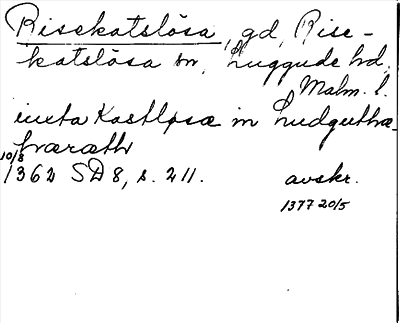 Risekatslösa, gd, Rise-
katslösa sn, Luggude hd,
Malm. l.
iuxta Kastløsæ in Ludguthæ-
hæræth
10/8
1362 SD 8, s. 211.
avskr.
1377 20/5